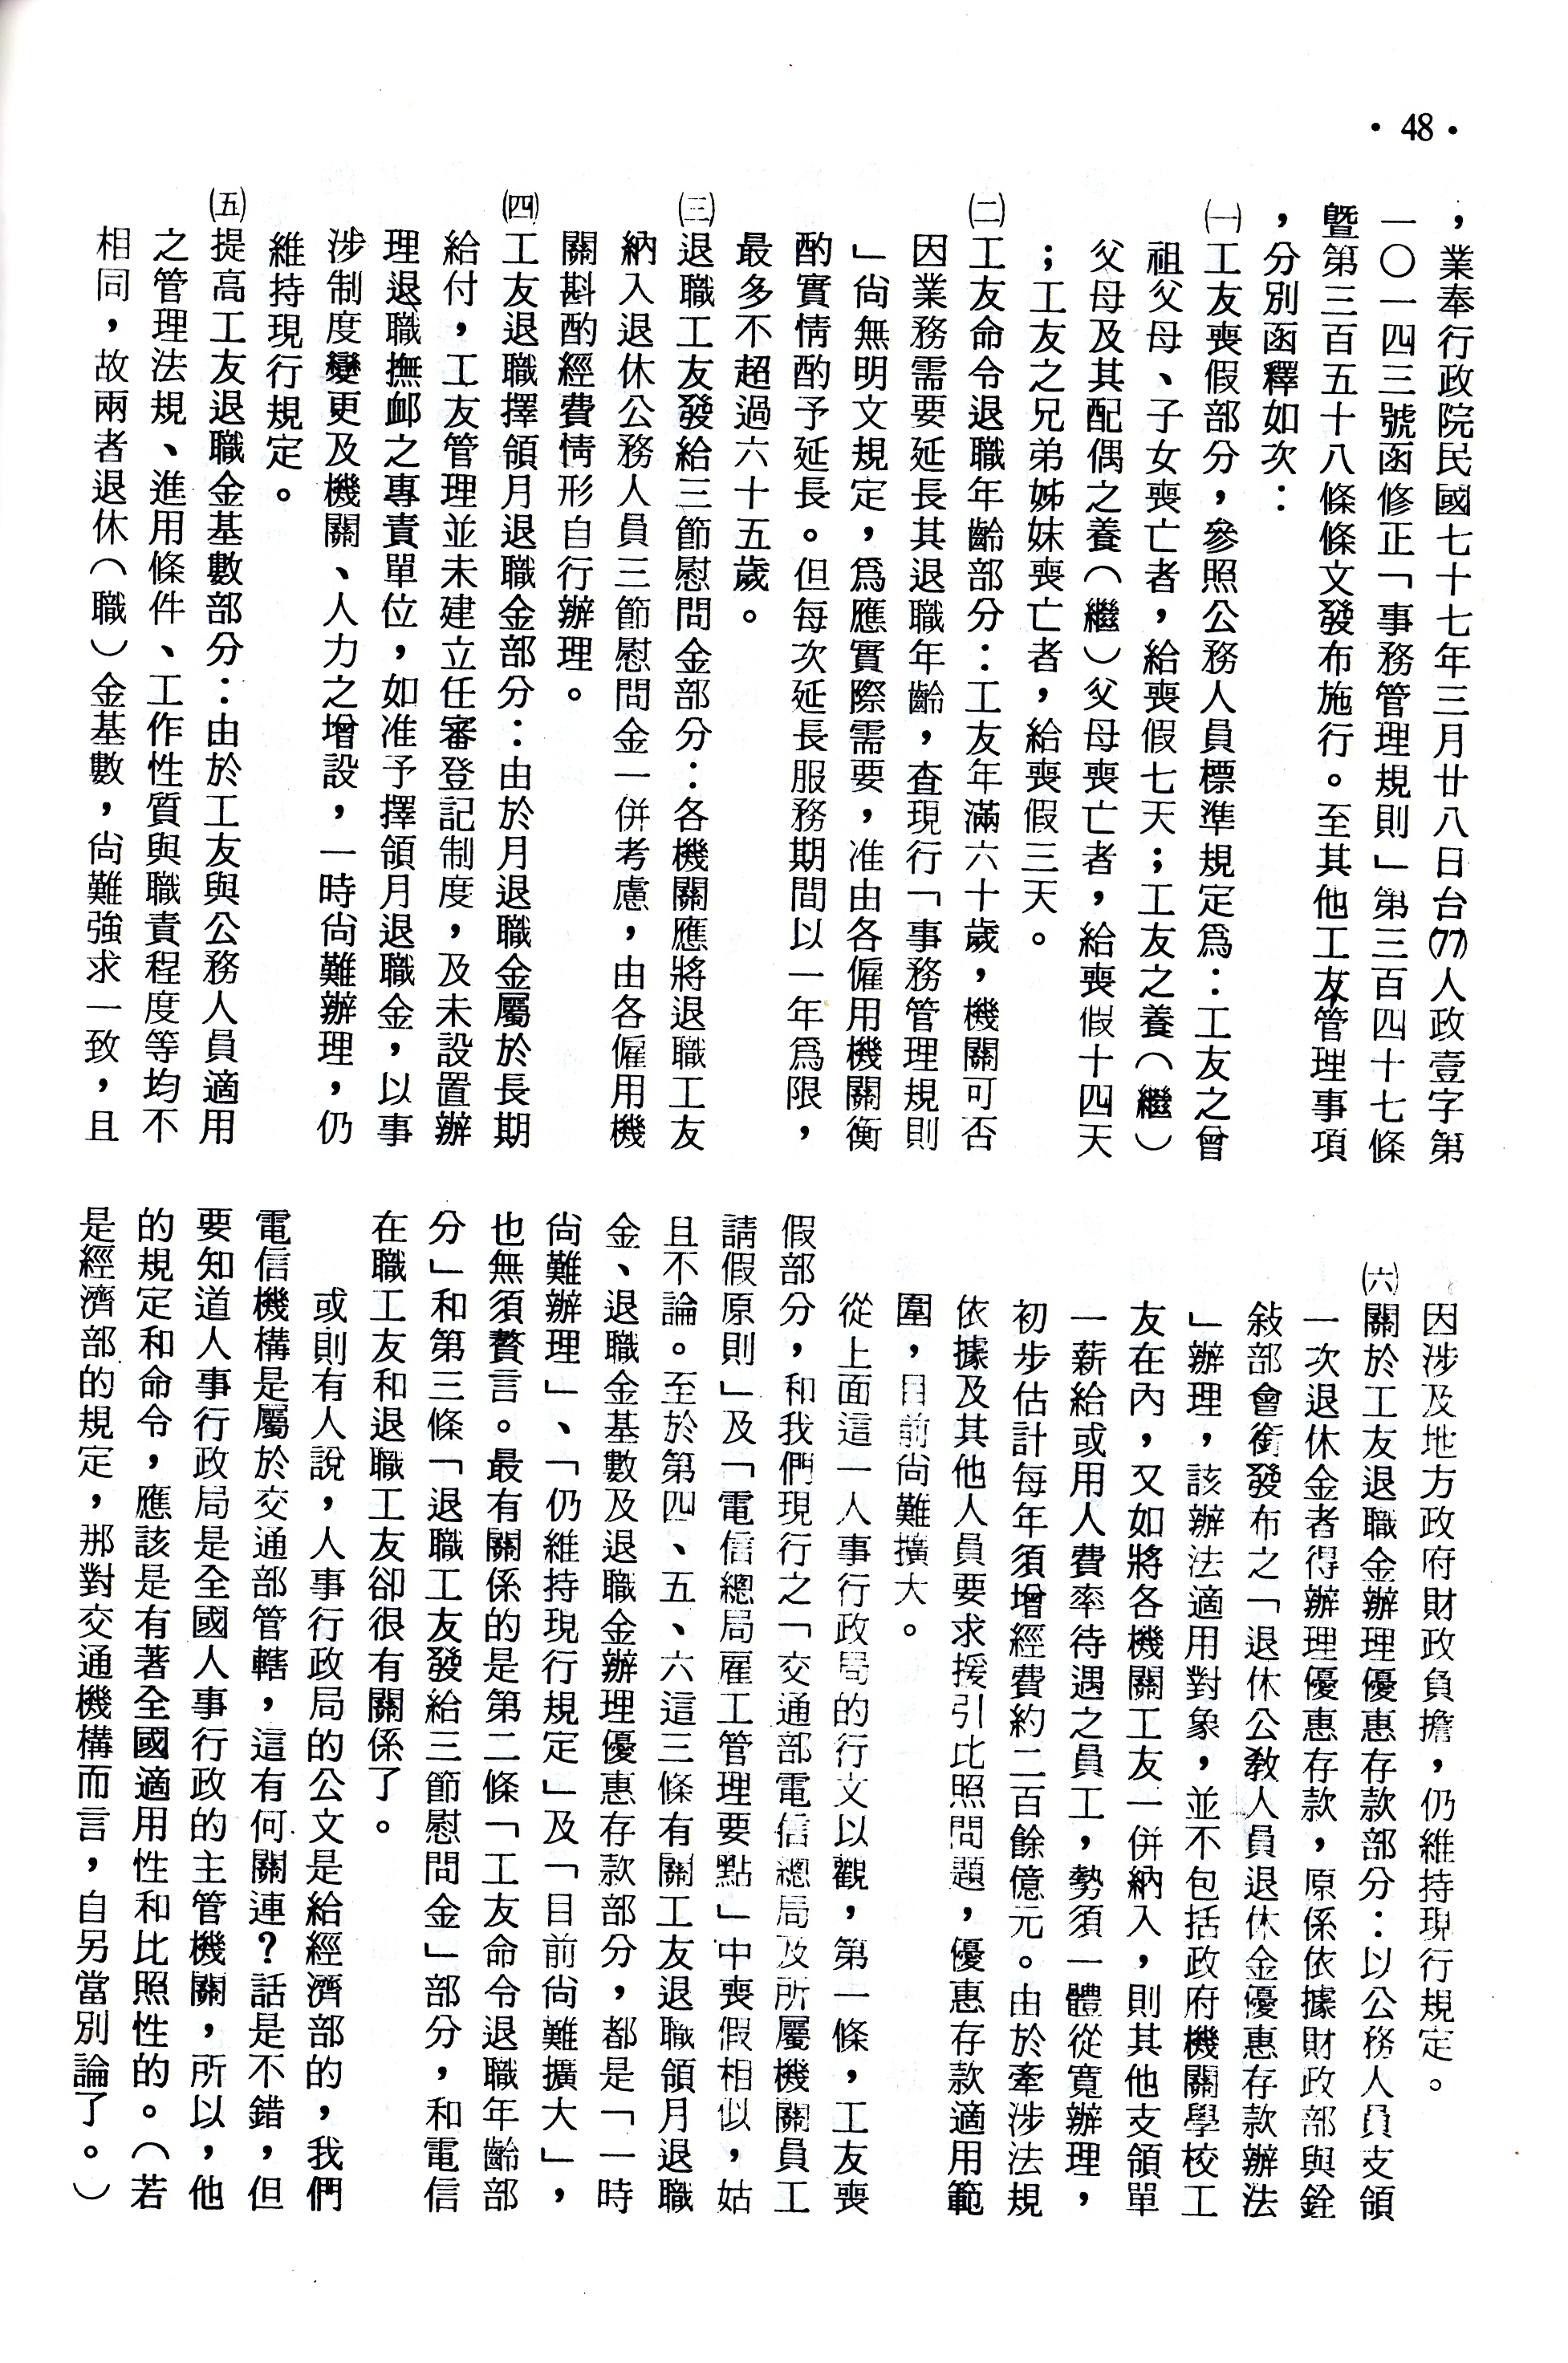 ・48・
，業奉行政院民國七十七年三月廿八日台(77)人政壹字第
一〇一四三號函修正「事務管理規則」第三百四十七條
暨第三百五十八條條文發布施行。至其他工友管理事項
，分別函釋如次：
㈠工友喪假部分，參照公務人員標準規定爲：工友之曾
祖父母、子女喪亡者，給喪假七天；工友之養（繼）
父母及其配偶之養（繼）父母喪亡者，給喪假十四天
；工友之兄弟姊妹喪亡者，給喪假三天。
㈡工友命令退職年齡部分：工友年滿六十歲，機關可否
因業務需要延長其退職年齡，查現行「事務管理規則
」尙無明文規定，爲應實際需要，准由各僱用機關衡
酌實情酌予延長。但每次延長服務期間以一年爲限，
最多不超過六十五歲。
㈢退職工友發給三節慰問金部分：各機關應將退職工友
納入退休公務人員三節慰問金一併考慮，由各僱用機
關斟酌經費情形自行辦理。
㈣工友退職擇領月退職金部分：由於月退職金屬於長期
給付，工友管理並未建立任審登記制度，及未設置辦
理退職撫卹之專責單位，如准予擇領月退職金，以事
涉制度變更及機關、人力之增設，一時尙難辦理，仍
維持現行規定。
㈤提高工友退職金基數部分：由於工友與公務人員適用
之管理法規、進用條件、工作性質與職責程度等均不
相同，故兩者退休（職）金基數，尙難強求一致，且
因涉及地方政府財政負擔，仍維持現行規定。
㈥關於工友退職金辦理優惠存款部分：以公務人員支領
一次退休金者得辦理優惠存款，原係依據財政部與銓
敍部會銜發布之「退休公敎人員退休金優惠存款辦法
」辦理，該辦法適用對象，並不包括政府機關學校工
友在內，又如將各機關工友一併納入，則其他支領單
一薪給或用人費率待遇之員工，勢須一體從寬辦理，
初步估計每年須增經費約二百餘億元。由於牽涉法規
依據及其他人員要求援引比照問題，優惠存款適用範
圍，目前尙難擴大。
從上面這一人事行政局的行文以觀，第一條，工友喪
假部分，和我們現行之「交通部電信總局及所屬機關員工
請假原則」及「電信總局雇工管理要點」中喪假相似，姑
且不論。至於第四、五、六這三條有關工友退職領月退職
金、退職金基數及退職金辦理優惠存款部分，都是「一時
尙難辦理」、「仍維持現行規定」及「目前尙難擴大」，
也無須贅言。最有關係的是第二條「工友命令退職年齡部
分」和第三條「退職工友發給三節慰問金」部分，和電信
在職工友和退職工友卻很有關係了。
或則有人說，人事行政局的公文是給經濟部的，我們
電信機構是屬於交通部管轄，這有何關連？話是不錯，但
要知道人事行政局是全國人事行政的主管機關，所以，他
的規定和命令，應該是有著全國適用性和比照性的。（若
是經濟部的規定，那對交通機構而言，自另當別論了。）